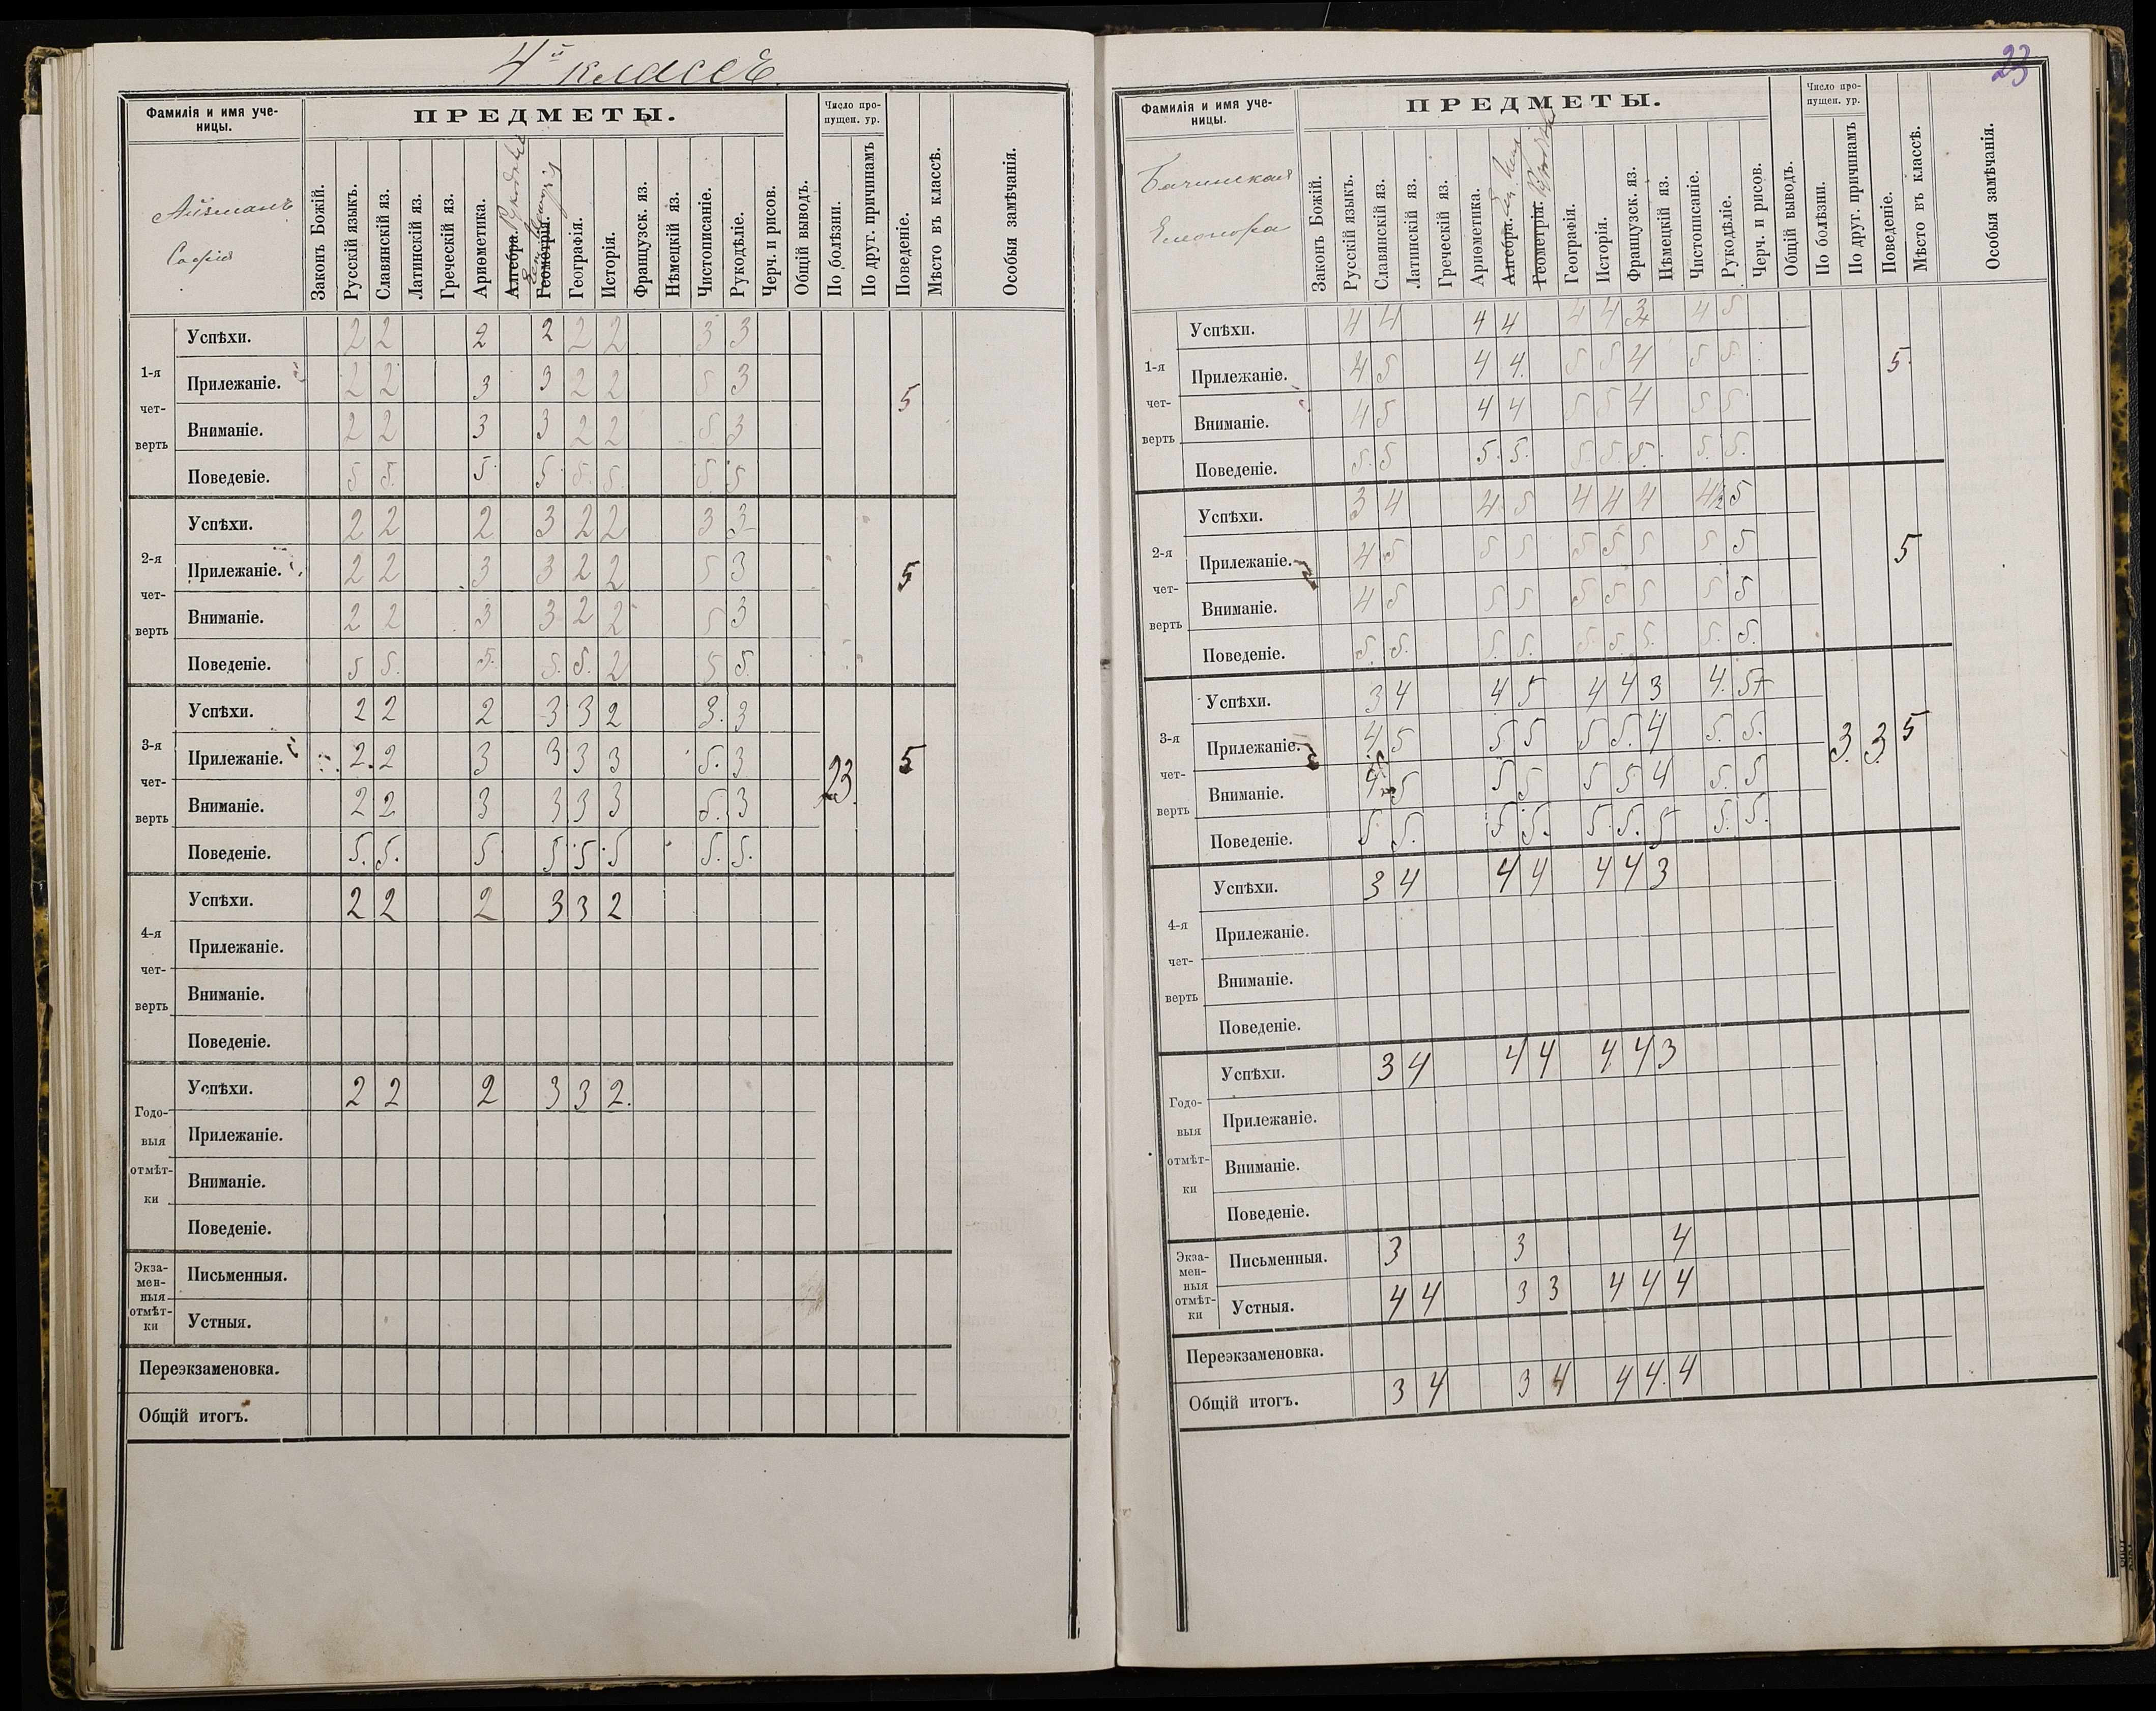 4й классъ
Фамилія и имя уче-
ницы.
ПРЕДМЕТЫ.
Число про-
пущен. ур.
Айзманъ
Софія
Законъ Божій.
Русскій языкъ.
Славянскій яз.
Латинскій яз.
Греческій яз.
Ариѳметика.
Алгебра.
Геометрія.
Географія.
Исторія.
Французск. яз.
Нѣмецкій яз.
Чистописаніе.
Рукодѣліе.
Черч. и рисов.
Общій выводъ.
По болѣзни.
По друг. причинамъ
Поведеніе.
Мѣсто въ классѣ.
Особыя замѣчанія.
1-я четверть
Успѣхи. 2 2 2 2 2 2 3 3
Прилежаніе. 2 2 3 3 2 2 5 3
Вниманіе. 2 2 3 3 2 2 5 3
Поведевіе. 5 5. 5. 5. 5. 5. 5. 5
5
2-я четверть
Успѣхи. 2 2 2 3 2 2 3 3
Прилежаніе. 2 2 3 3 2 2 5 3
Вниманіе. 2 2 3 3 2 2 5 3
Поведеніе. 5 5. 5. 5. 5. 2 5 5.
5
3-я четверть
Успѣхи. 2 2 2 3 3 2 3. 3
Прилежаніе. 2. 2 3 3 3 3 5. 3
Вниманіе. 2 2 3 3 3 3 5. 3
Поведеніе. 5. 5. 5 5 5 5 5. 5.
23. 5
4-я четверть
Успѣхи. 2 2 2 3 3 2
Прилежаніе.
Вниманіе.
Поведеніе.
Годовыя отмѣтки
Успѣхи. 2 2 2 3 3 2.
Прилежаніе.
Вниманіе.
Поведеніе.
Экзаменныя отмѣтки
Письменныя.
Устныя.
Переэкзаменовка.
Общій итогъ.
23
Фамилія и имя уче-
ницы.
ПРЕДМЕТЫ.
Число про-
пущен. ур.
Бачинская
Елеонора
Законъ Божій.
Русскій языкъ.
Славянскій яз.
Латинскій яз.
Греческій яз.
Ариѳметика.
Алгебра.
Геометрія.
Географія.
Исторія.
Французск. яз.
Нѣмецкій яз.
Чистописаніе.
Рукодѣліе.
Черч. и рисов.
Общій выводъ.
По болѣзни.
По друг. причинамъ
Поведеніе.
Мѣсто въ классѣ.
Особыя замѣчанія.
1-я четверть
Успѣхи. 4 4 4 4 4 4 3 4 5
Прилежаніе. 4 5 4 4. 5 5 4 5 5
Вниманіе. 4 5 4 4 5 5 4 5 5
Поведеніе. 5. 5 5. 5. 5. 5. 5. 5. 5.
5.
2-я четверть
Успѣхи. 3 4 4 5 4 4 4 4½ 5
Прилежаніе. 4 5 5 5 5 5 5 5 5
Вниманіе. 4 5 5 5 5 5 5 5 5
Поведеніе. 5. 5. 5. 5. 5. 5. 5. 5. 5.
5
3-я четверть
Успѣхи. 3 4 4 5 4 4 3 4. 5+
Прилежаніе. 4 5 5 5 5 5. 4 5. 5.
Вниманіе. 4 5 5 5 5 5 4 5. 5
Поведеніе. 5 5. 5 5. 5 5. 5 5. 5.
3. 3. 5
4-я четверть
Успѣхи. 3 4 4 4 4 4 3
Прилежаніе.
Вниманіе.
Поведеніе.
Годовыя отмѣтки
Успѣхи. 3 4 4 4 4 4 3
Прилежаніе.
Вниманіе.
Поведеніе.
Экзаменныя отмѣтки
Письменныя. 3 3 4
Устныя. 4 4 3 3 4 4 4
Переэкзаменовка.
Общій итогъ. 3 4 3 4 4 4. 4